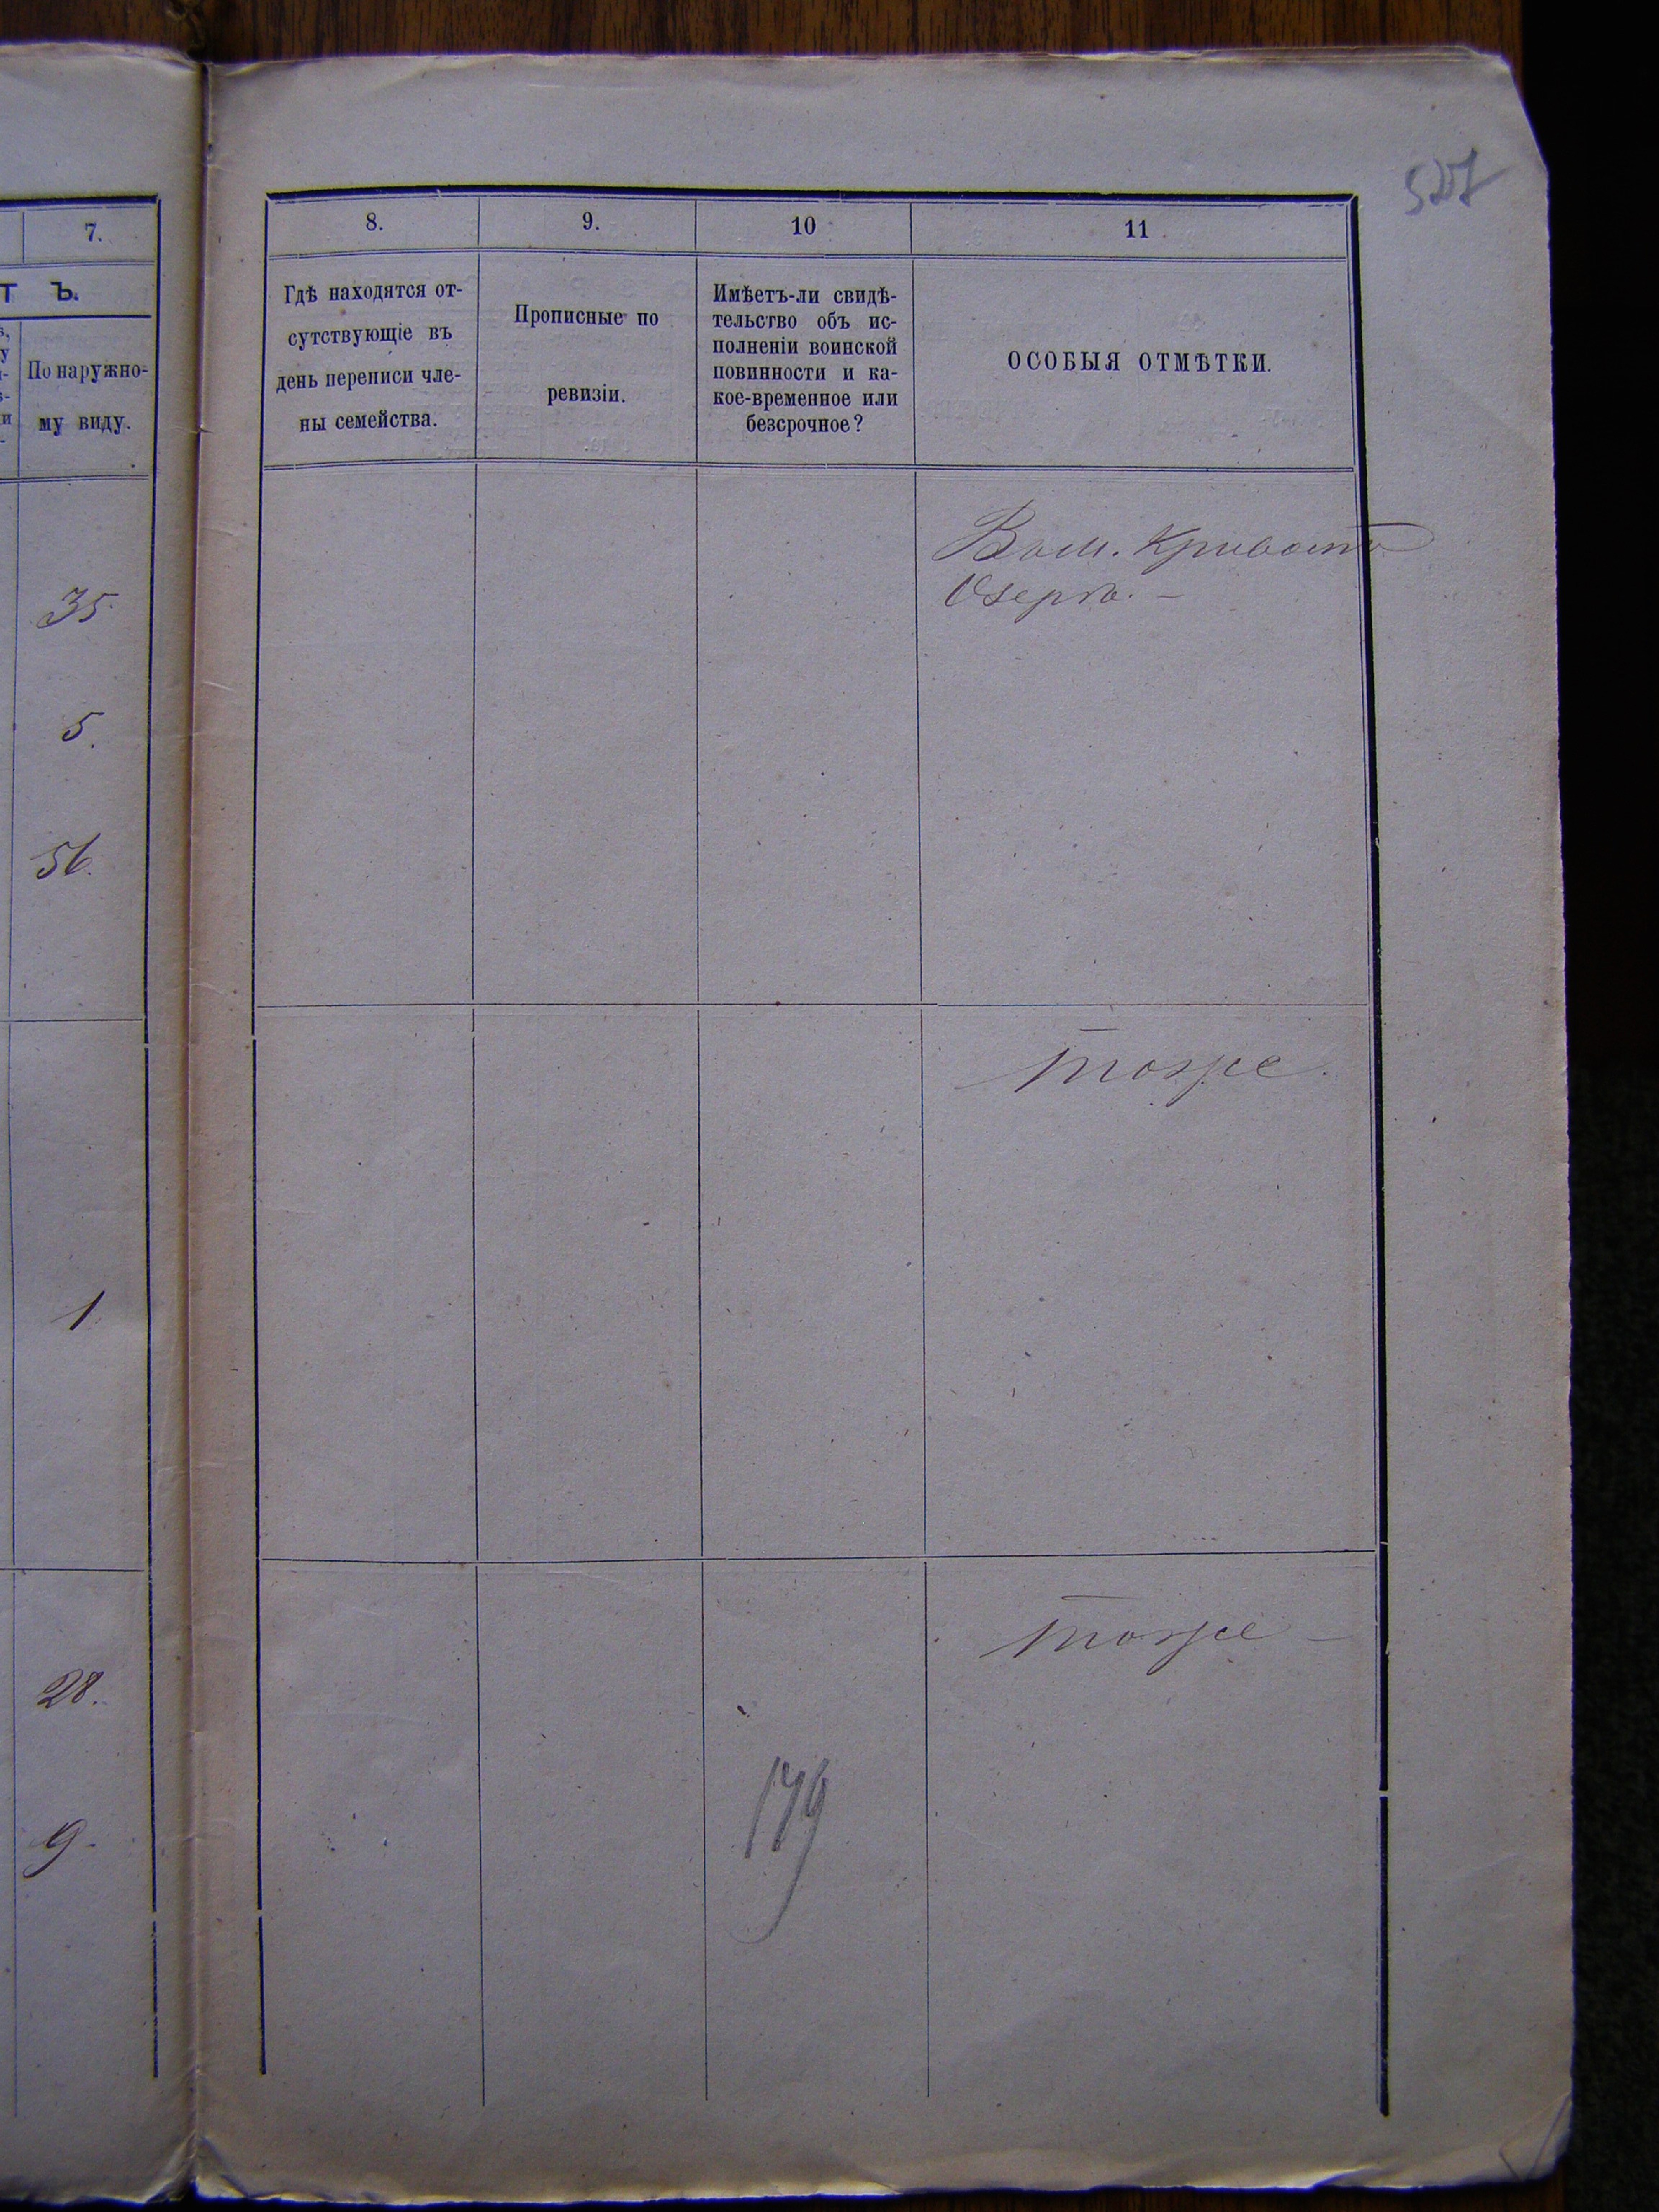 527
7.
Т Ъ.
По наружно-
му виду.
35
5.
56.
1
28.
9.
8.
9.
10
11
Гдѣ находятся от-
сутствующіе въ
день переписи чле-
ны семейства.
Прописные по
ревизіи.
Имѣетъ-ли свидѣ-
тельство объ ис-
полненіи воинской
повинности и ка-
кое-временное или
безсрочное?
ОСОБЫЯ ОТМѢТКИ.
Озерѣ. –
тоже.
тоже –
179